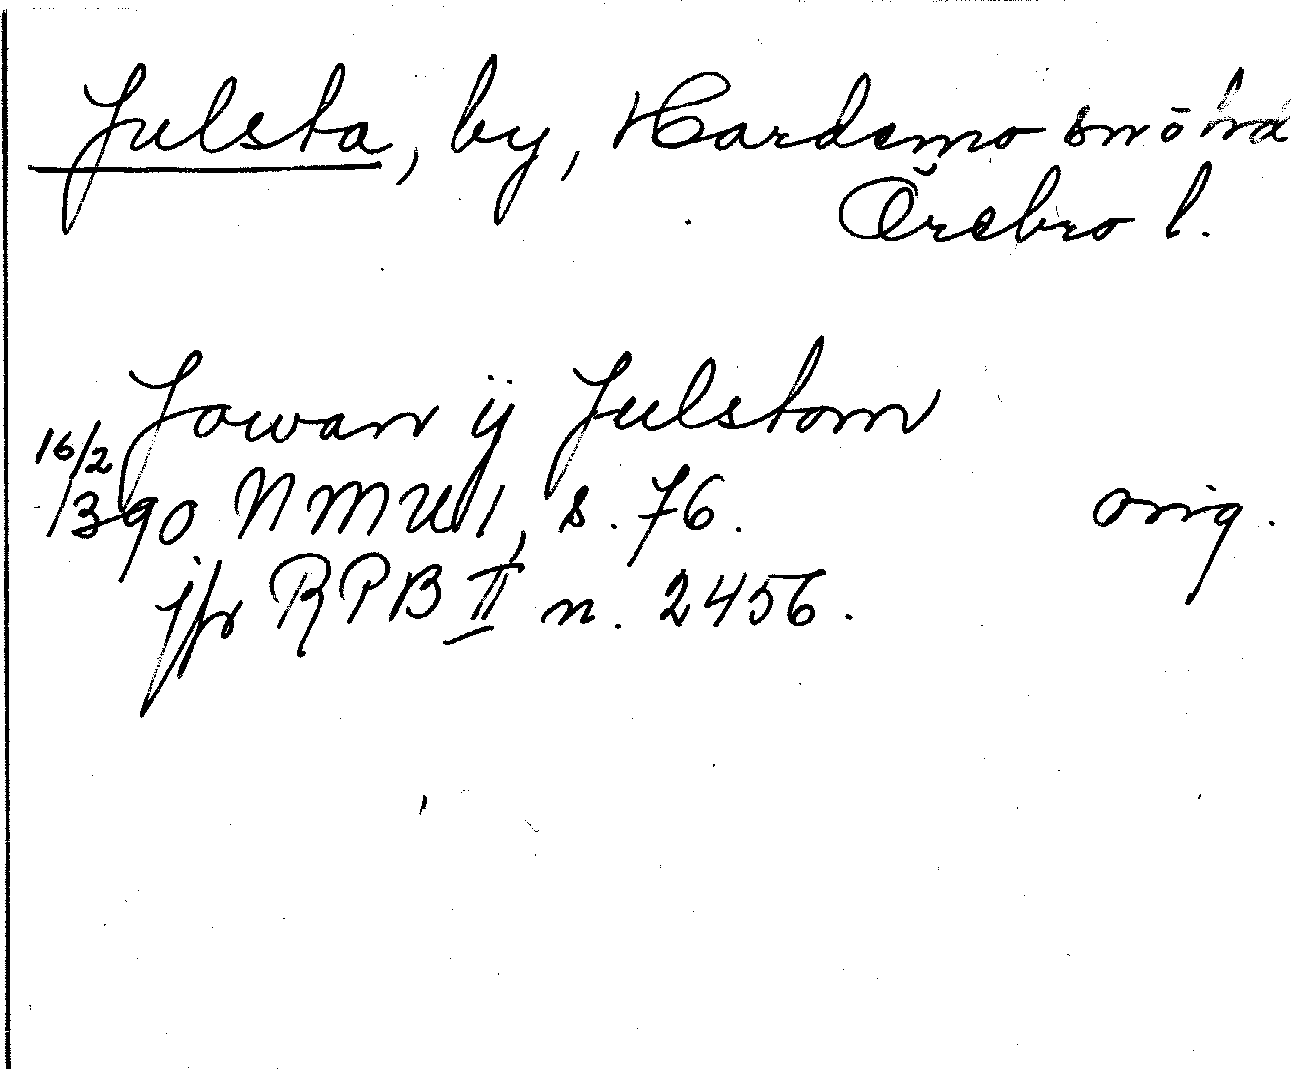 Julsta, by, Hardemo sn o hd
Örebro l.
Jowan ij Julstom
16/2
1390 NMU 1, s. 76. orig.
jfr RPB II n. 2456.